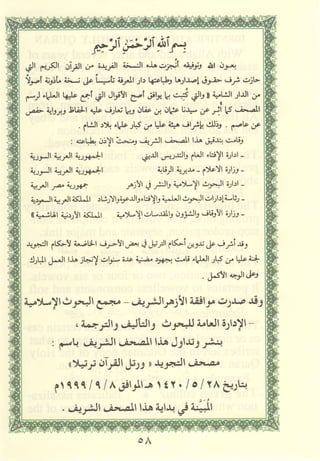 بسم الله الرحمن الرحيم
بعون الله وتوفيقه أنجزت هذه النسخة الفريدة من القرآن الكريم التي
حازت شرف حقوق إصدارها وطباعتها دار المعرفة تأسيساً على نسخة مأذونة أصولاً
من الدار الشامية « والتي كتبت بما يوافق أصح الأقوال التي أجمع عليها العلماء لرسم
المصحف كما أثر عن سيدنا عثمان بن عفان وبما تعارف عليه الحفاظ وبرواية حفص
عن عاصم . وذلك بإشراف هيئة عليا من كبار علماء بلاد الشام .
وقامت بتدقيق هذا المصحف الشريف ومنحت الإذن بطباعته :
- إدارة الإفتاء العام والتدريس الديني الجمهورية العربية السورية
- وزارة الإعلام - مديرية الرقابة الجمهورية العربية السورية
- إدارة البحوث الإسلامية والنشر في الأزهر جمهورية مصر العربية
- رئاسة إدارات البحوث العلمية والإفتاء والدعوة والإرشاد المملكة العربية السعودية
- وزارة الأوقاف والشؤون والمقدسات الإسلامية المملكة الأردنية الهاشمية »
وقد أشرف على تدوين أحكام الترتيل في بعض الأحرف الخاضعة لأحكام التجويد
لجنة عليا من كبار العلماء قامت بجهود مضنية عدة سنوات لإنجاز هذا العمل المبارك
وعلى الوجه الأكمل .
وقد صدرت موافقة الأزهر الشريف - مجمع البحوث الإسلامية
- الإدارة العامة للبحوث والتأليف والترجمة ،
بنشر وتداول هذا المصحف الشريف باسم :
مصحف التجويد « ورتل القرآن ترتيلا »
بتاريخ ٢٨ / ٥ / ١٤٢٠ هـ الموافق ٨ / ٩ / ١٩٩٩ م
المبينة في بداية هذا المصحف الشريف .
٥٨